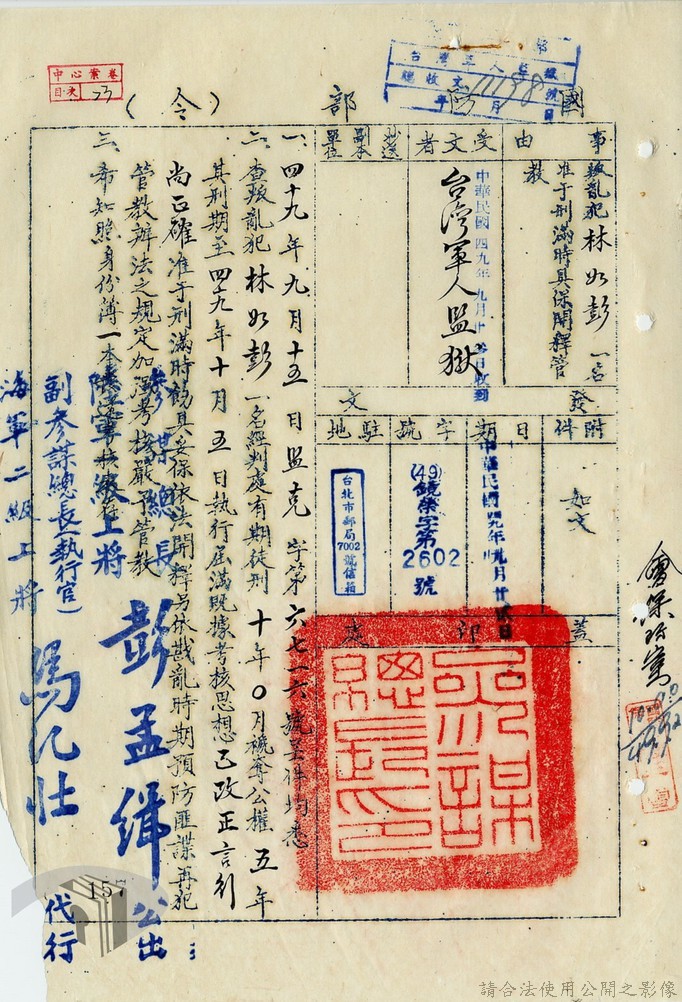 國防部
(令)
中心案卷
目次 23
台灣軍人監獄
總收文 11198 號
年 月 日
事由
叛亂犯林如彭一名
准予刑滿時具保開釋管
教
受文者
台灣軍人監獄
中華民國四九年九月廿 日收到
抄送
副本
單位
發文
附件
如文
日期
中華民國四九年九月廿 日
字號
(49)
鐃策字第
2602
號
駐地
台北市郵局
7002號信箱
蓋印處
參謀總長印
一、四十九年九月十五日監克字第六七一六號呈件均悉
二、查叛亂犯林如彭一名經判處有期徒刑十年0月褫奪公權五年
其刑期至四九年十月五日執行屆滿既據考核思想已改正言行
尚正確准予刑滿時飭具妥保依法開釋另依戡亂時期預防匪諜再犯
管教辦法之規定加強考核嚴予管教
三、希知照身份簿一本
參謀總長
陸軍一級上將 彭孟緝 公出
副參謀總長(執行官)
海軍二級上將 馬紀壯 代行
157
請合法使用公開之影像